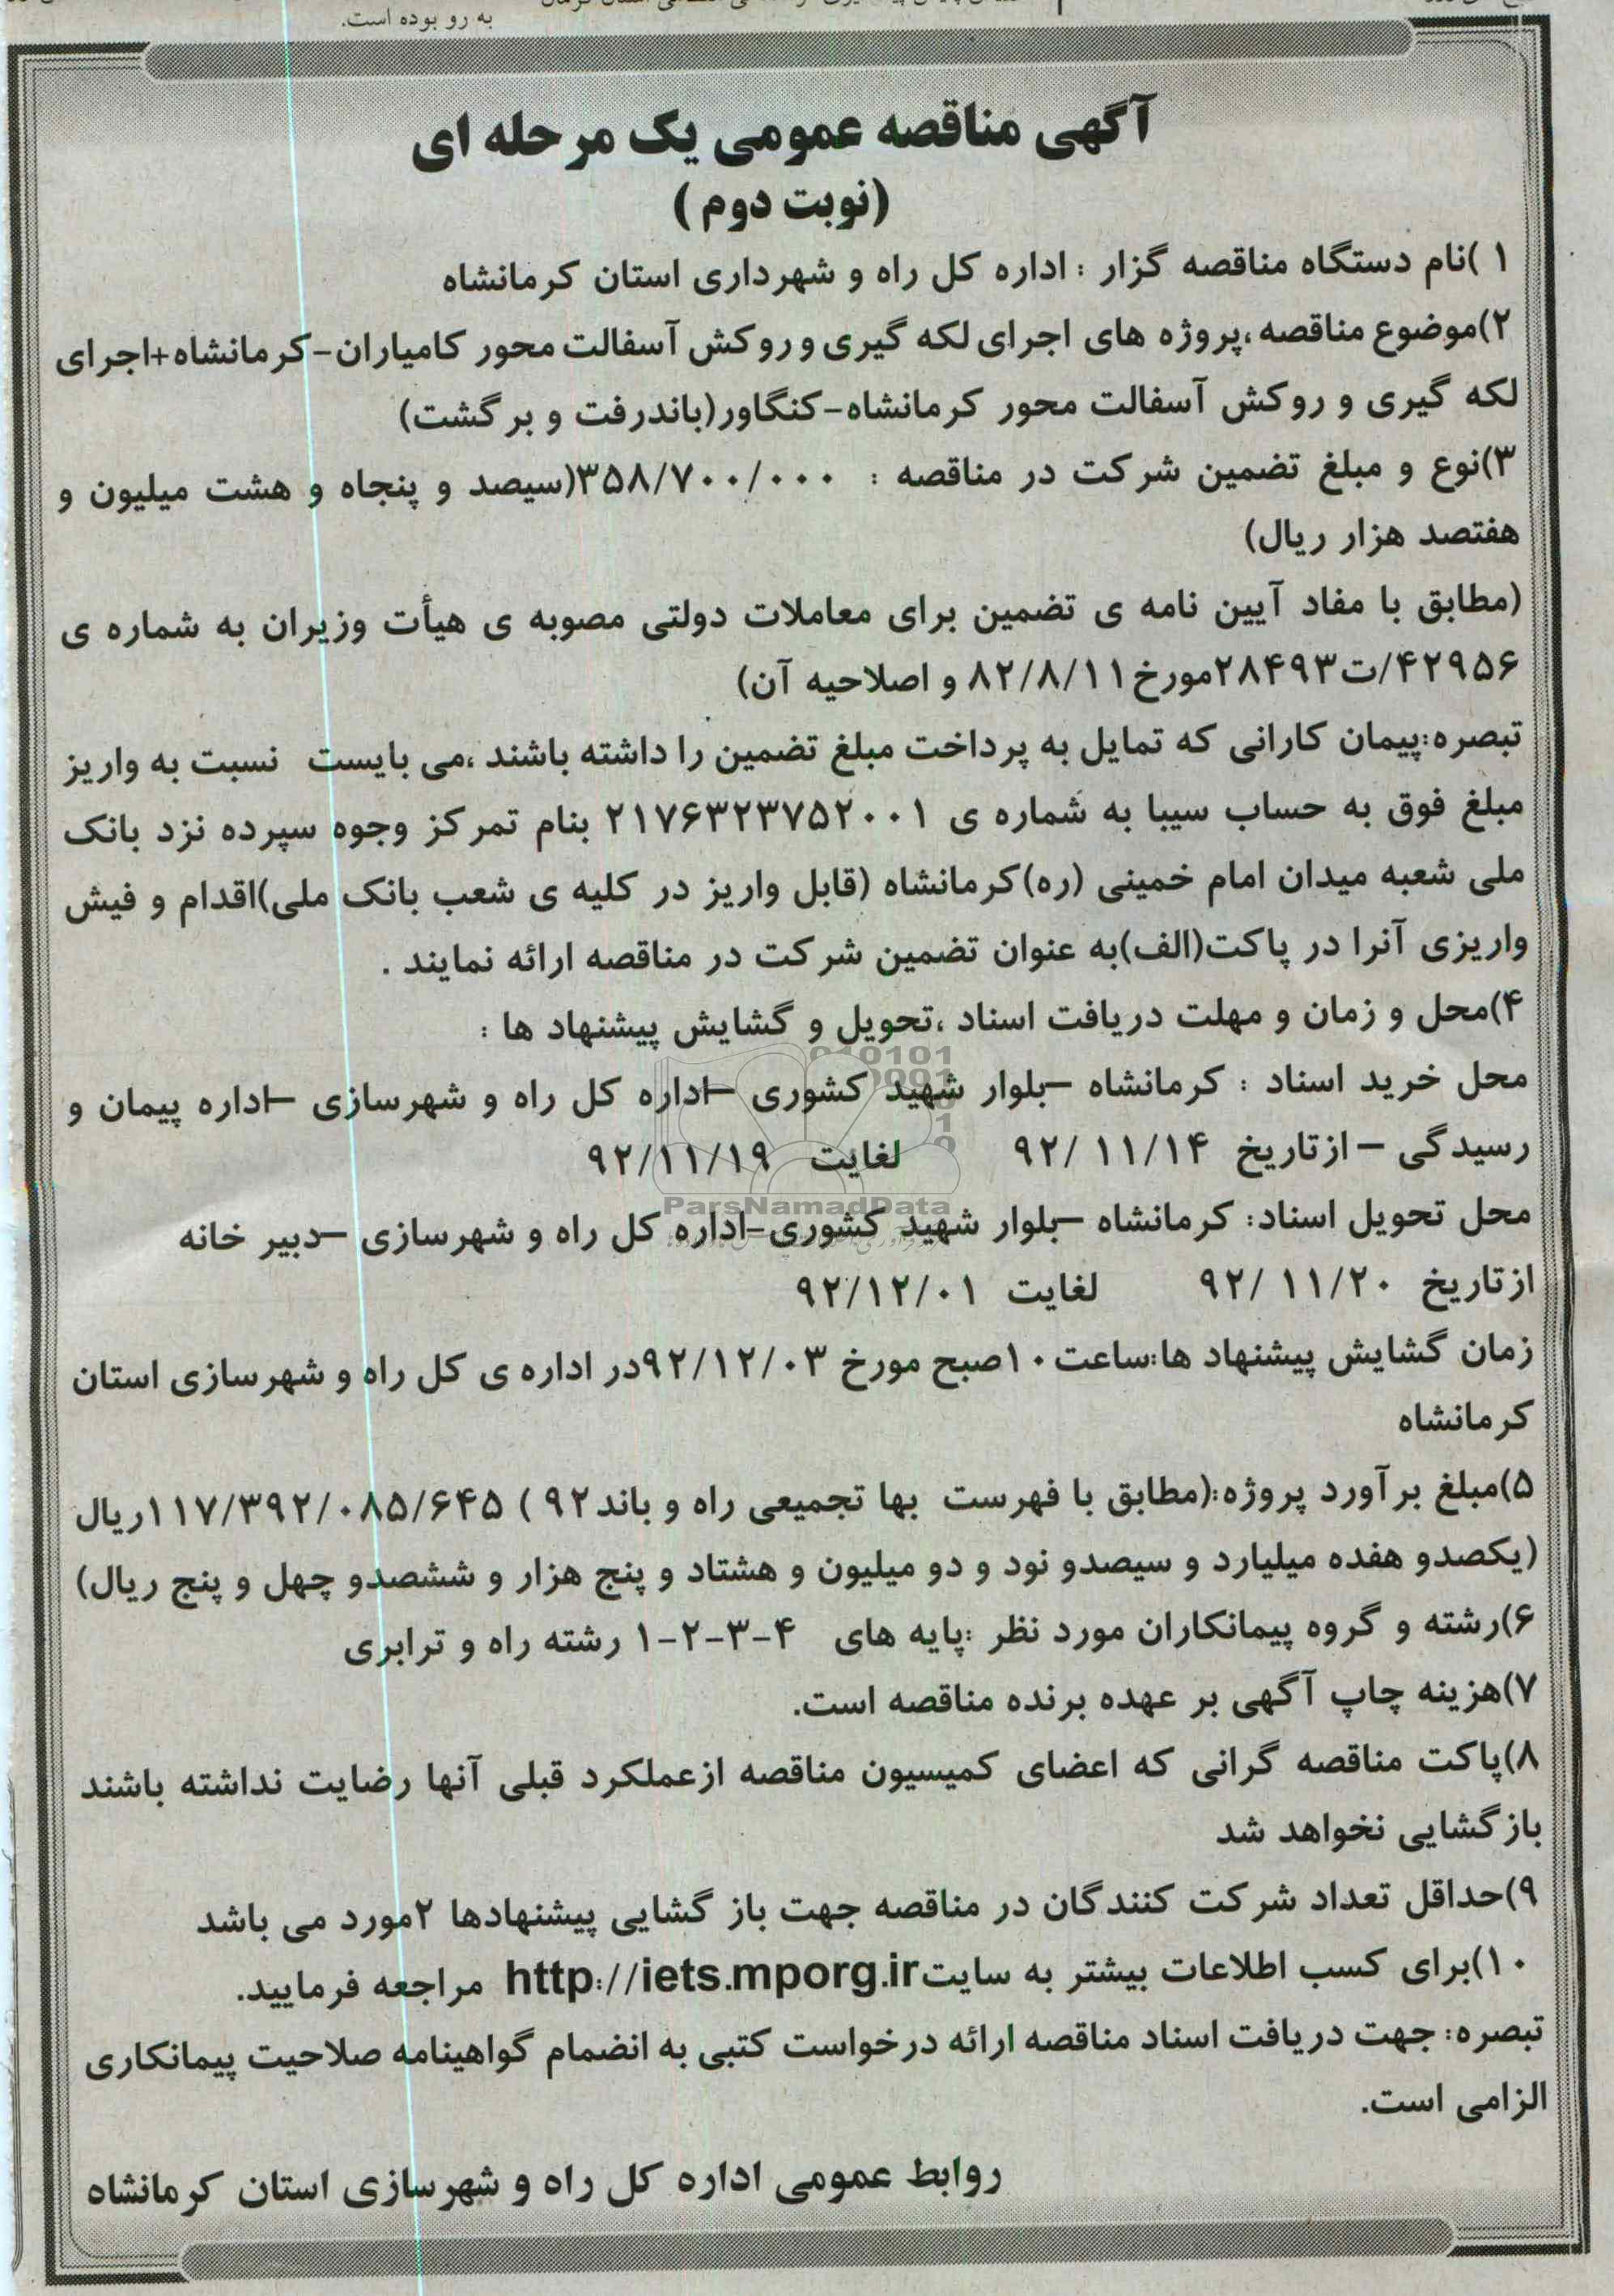 به رو بوده است.
آگهی مناقصه عمومی یک مرحله ای
(نوبت دوم )
۱ )نام دستگاه مناقصه گزار : اداره کل راه و شهرداری استان کرمانشاه
۲)موضوع مناقصه،پروژه های اجرای لکه گیری و روکش آسفالت محور کامیاران-کرمانشاه+اجرای
لکه گیری و روکش آسفالت محور کرمانشاه-کنگاور(باندرفت و برگشت)
۳)نوع و مبلغ تضمین شرکت در مناقصه : ۳۵۸/۷۰۰/۰۰۰(سیصد و پنجاه و هشت میلیون و
هفتصد هزار ریال)
(مطابق با مفاد آیین نامه ی تضمین برای معاملات دولتی مصوبه ی هیأت وزیران به شماره ی
۴۲۹۵۶/ت۲۸۴۹۳مورخ۸۲/۸/۱۱ و اصلاحیه آن)
تبصره:پیمان کارانی که تمایل به پرداخت مبلغ تضمین را داشته باشند ،می بایست نسبت به واریز
مبلغ فوق به حساب سیبا به شماره ی ۲۱۷۶۳۲۳۷۵۲۰۰۱ بنام تمرکز وجوه سپرده نزد بانک
ملی شعبه میدان امام خمینی (ره)کرمانشاه (قابل واریز در کلیه ی شعب بانک ملی)اقدام و فیش
واریزی آنرا در پاکت(الف)به عنوان تضمین شرکت در مناقصه ارائه نمایند .
۴)محل و زمان و مهلت دریافت اسناد ،تحویل و گشایش پیشنهاد ها :
محل خرید اسناد : کرمانشاه –بلوار شهید کشوری –اداره کل راه و شهرسازی –اداره پیمان و
رسیدگی – ازتاریخ ۹۲/ ۱۱/۱۴ لغایت ۹۲/۱۱/۱۹
ParsNamadData
محل تحویل اسناد: کرمانشاه –بلوار شهید کشوری-اداره کل راه و شهرسازی –دبیر خانه
ازتاریخ ۹۲/ ۱۱/۲۰ لغایت ۹۲/۱۲/۰۱
زمان گشایش پیشنهاد ها:ساعت۱۰صبح مورخ ۹۲/۱۲/۰۳در اداره ی کل راه و شهرسازی استان
کرمانشاه
۵)مبلغ برآورد پروژه:(مطابق با فهرست بها تجمیعی راه و باند۹۲ ) ۱۱۷/۳۹۲/۰۸۵/۶۴۵ریال
(یکصدو هفده میلیارد و سیصدو نود و دو میلیون و هشتاد و پنج هزار و ششصدو چهل و پنج ریال)
۶)رشته و گروه پیمانکاران مورد نظر :پایه های ۴-۳-۲-۱ رشته راه و ترابری
۷)هزینه چاپ آگهی بر عهده برنده مناقصه است.
۸)پاکت مناقصه گرانی که اعضای کمیسیون مناقصه ازعملکرد قبلی آنها رضایت نداشته باشند
بازگشایی نخواهد شد
۹)حداقل تعداد شرکت کنندگان در مناقصه جهت باز گشایی پیشنهادها ۲مورد می باشد
۱۰)برای کسب اطلاعات بیشتر به سایتhttp://iets.mporg.ir مراجعه فرمایید.
تبصره: جهت دریافت اسناد مناقصه ارائه درخواست کتبی به انضمام گواهینامه صلاحیت پیمانکاری
الزامی است.
روابط عمومی اداره کل راه و شهرسازی استان کرمانشاه